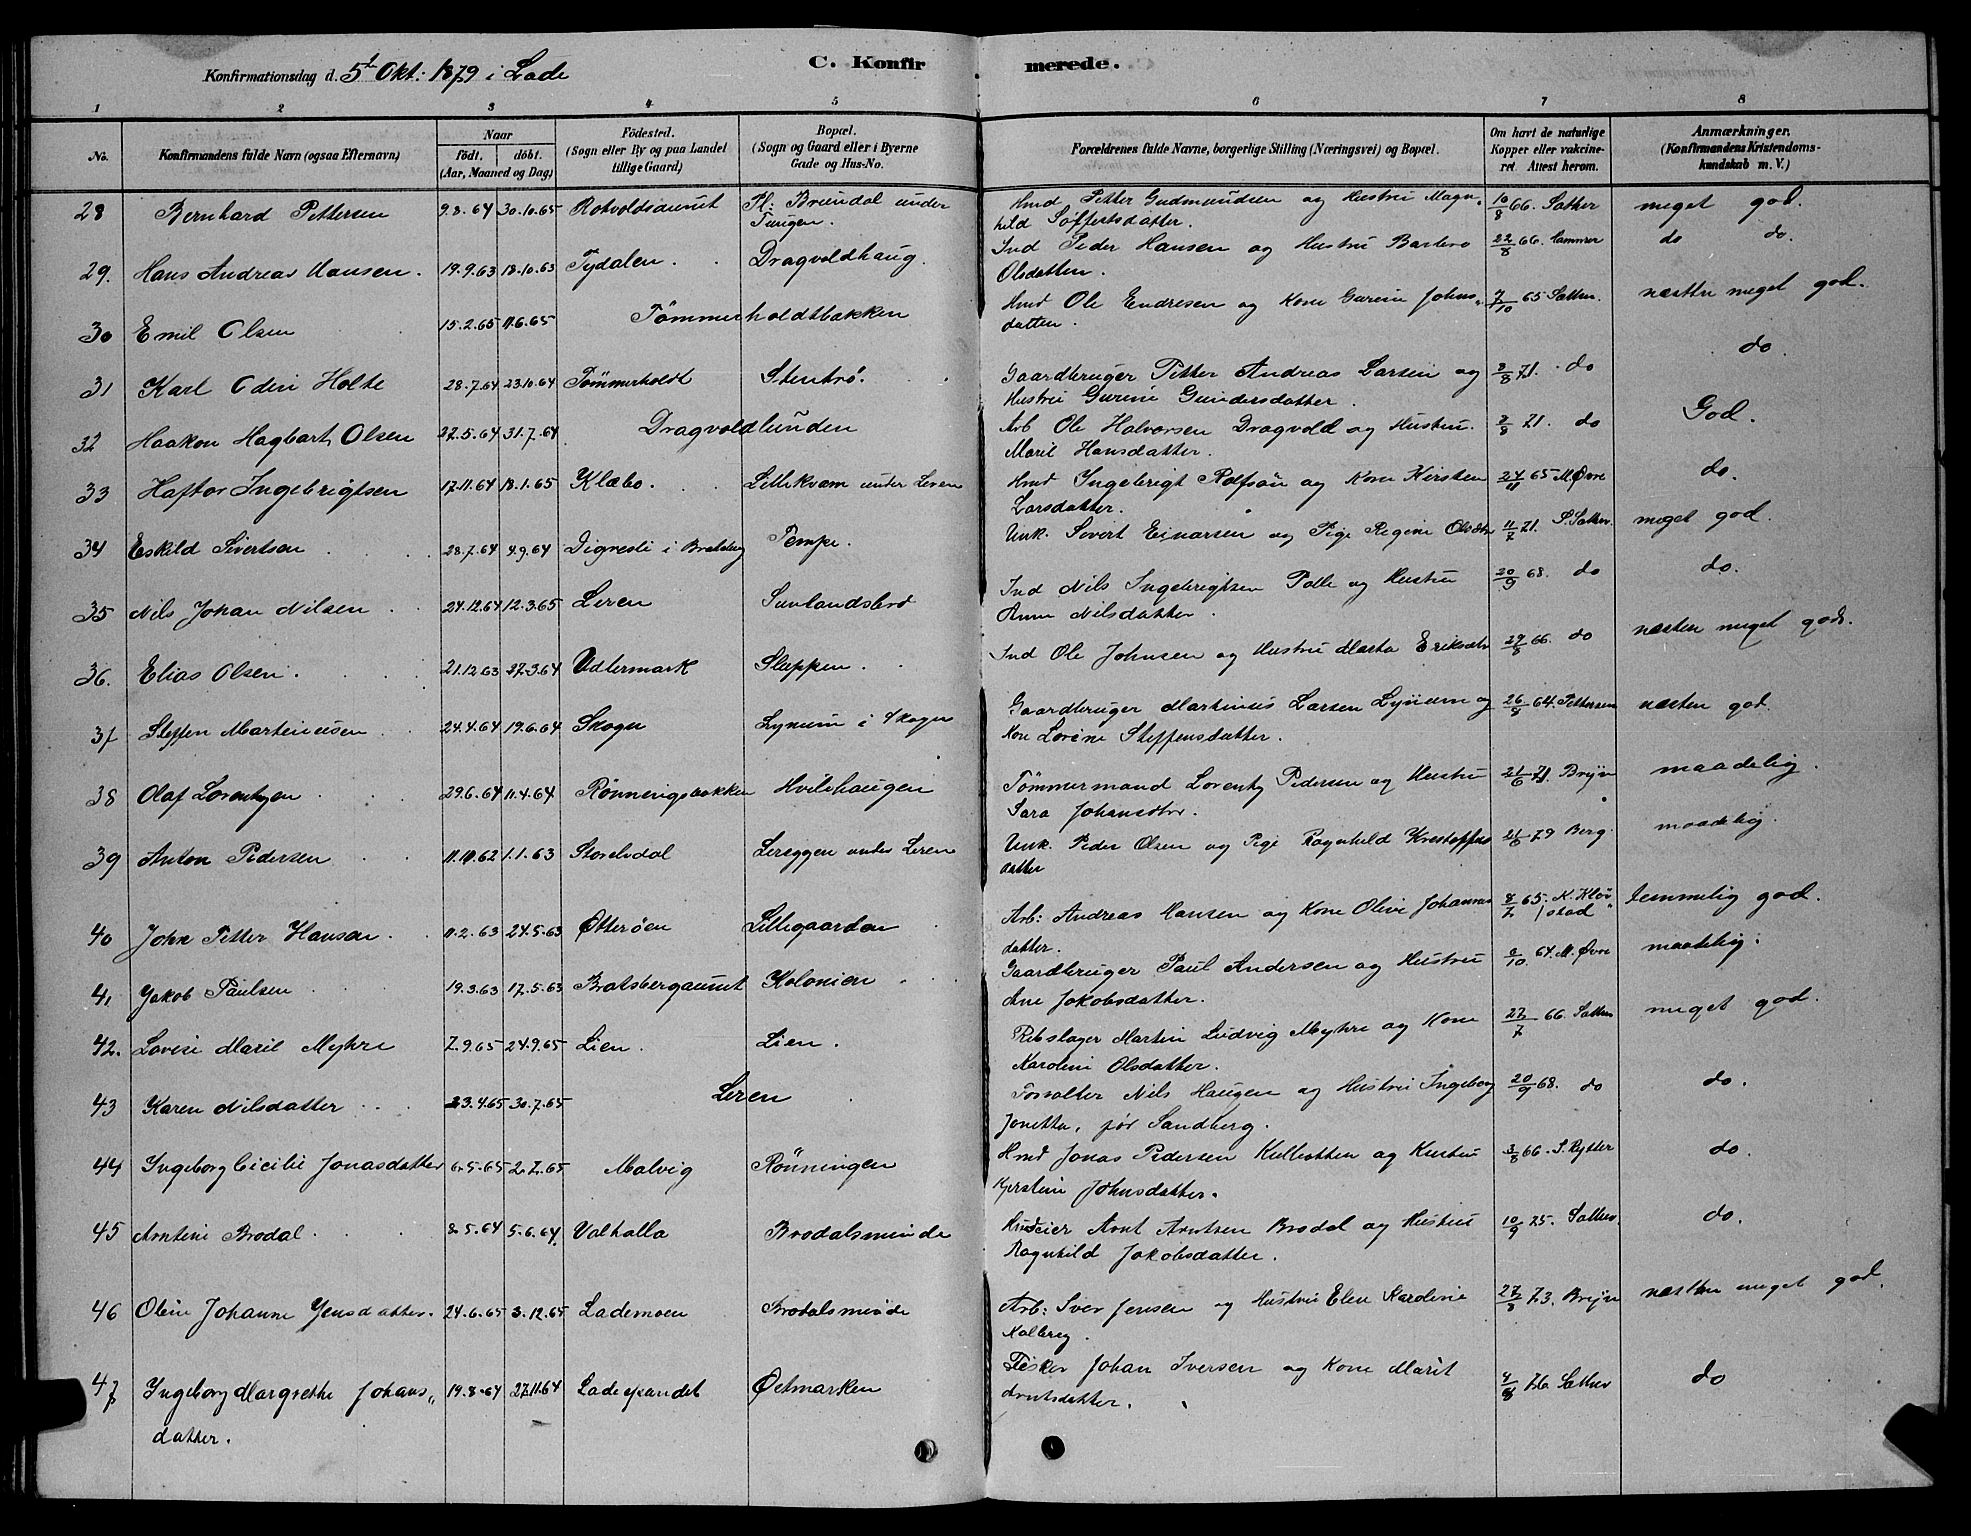 Konfirmationsdag d. 5t Okt: 1879 i Lade
C. Konfirmerede.
1 2 3 4 5 6 7 8
No. Konfirmandens fulde Navn (ogsaa Efternavn) Naar födt. döbt. (Aar, Maaned og Dag) Födested. (Sogn eller By og paa Landet tillige Gaard) Bopæl. (Sogn og Gaard eller i Byerne Gade og Hus-No. Forældrenes fulde Navne, borgerlige Stilling (Næringsvei) og Bopæl. Om havt de naturlige Kopper eller vaccineret Attest herom. Anmærkninger. (Konfirmandens Kristendomskundskab m. V.)
28 Bernhard Pettersen 9.8.64 30.10.65 Rotvoldsaunet Pl: Brundal under Tungen. Hmd Petter Gudmundsen og Hustru Magnhild Søffertsdatter. 10/8 66. Sather meget god.
29. Hans Andreas Hansen. 19.9.63 18.10.63 Tydalen. Dragvoldhaug. Ind Peder Hansen og Hustru Barbro Olsdatter. 22/8 66. do do.
30 Emil Olsen 15.2.65 11.6.65 Tømmerholdtbakken Hmd Ole Endresen og Kone Gurine Johnsdatter. 7/10 65 Sather. næsten meget god.
31 Karl Odin Holte 28.7.64 23.10.64 Tømmerholdt Stentrø. Gaardbruger Petter Andreas Larsen og Hustru Gurine Gundersdatter. 8/8 71. do do.
32 Haakon Hagbart Olsen 22.5.64 31.7.64 Dragvoldlunden Arb Ole Halvorsen Dragvold og Hustru Marit Hansdatter. 8/8 71. do God.
33 Haftor Ingebrigtsen 17.11.64 18.1.65 Klæbo. Lillekvam under Leren Hmd Ingebrigt Rolfsøn og Kone Kirsten Larsdatter. 24/11 65 M. Øvre do.
34 Eskild Sivertsen 28.7.64 4.9.64 Digresli i Bratsberg Tempe. Unk. Sivert Einarsen og Pige Regine Olsdtr 11/7 71. S. Sather. meget god.
35 Nils Johan Nilsen 24.12.64 12.3.65 Leren Sunlandsbro Ind Nils Ingebrigtsen Palle og Hustru Anne Nilsdatter. 20/9 68. do do.
36. Elias Olsen. 21.12.63 27.3.64 Udlermark Sluppen. Ind Ole Johnsen og Hustru Marta Eriksdtr 29/8 66. do næsten meget god.
37 Steffen Martinusen 24.4.64 19.6.64 Skogn Lynum i Skogn Gaardbruger Martinus Larsen Lynum og Kon Lorine Steffensdatter. 26/8 64. Pettersen næsten god
38 Olaf Lorentzen 29.6.64 11.4.64 Rønningsbakken Hvilehaugen Tømmermand Lorentz Pedersen og Hustru Sara Johansdtr. 21/6 71. Brijn maadelig.
39 Anton Pedersen 11.11.62 1.1.63 Storelvdal Lereggen under Leren Unk. Peder Olsen og Pige Ragnhild Krestoffersdatter 21/6 79 Berg. maadelig.
40 John Petter Hansen. 11.2.63 24.5.63 Øtterøen Lillegaarden Arb: Andreas Hansen og Kone Oline Johannesdatter. 8/7 65. temmelig god.
41 Jakob Paulsen 19.3.63 17.5.63 Bratsbergaunet Kolonien Gaardbruger Paul Andersen og Hustru Ane Jakobsdatter. 64. M. Øvre maadelig.
42. Lovise Marit Myhre 7.9.65 24.9.65 Lien. Lien. Rebslager Martin Ludvig Myhre og Kone Karoline Olsdatter. 27/7 66. Sather meget god.
43 Karen Nilsdatter 23.4.65 30.7.65 Leren Forvalter Nils Haugen og Hustru Ingeborg Jonetta, før Sandberg. 20/9 68. do do.
44 Ingeborg Cicilie Jonasdatter 6.5.65 2.7.65 Malvig Rønningen Hmd Jonas Pedersen og Hustru Kjerstine Johnsdatter. 3/8 66. S. Rytter do.
45 Arntine Brodal. 8.5.64 5.6.64. Valhalla Brodalsminde Huseier Arnt Arntsen Brodal og Hustru Ragnhild Jakobsdatter. 10/9 75. Sather. do.
46 Oline Johanne Jensdatter. 24.6.65 3.12.65 Lademoen Brodalsminde Arb: Iver Jensen og Hustru Elen Karoline Kolberg. 27/8 73. Brijn næsten meget god.
47 Ingeborg Margrethe Johansdatter. 19.8.64 27.11.64 Ladespandet Østmarken Fisker Johan Iversen og Kone Marit Arntsdatter. 76. Sather do